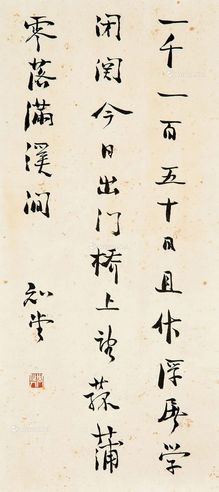 一千一百五十日且作浮屠学
闭関今日出门桥上望菰蒲
零落满溪涧
知堂